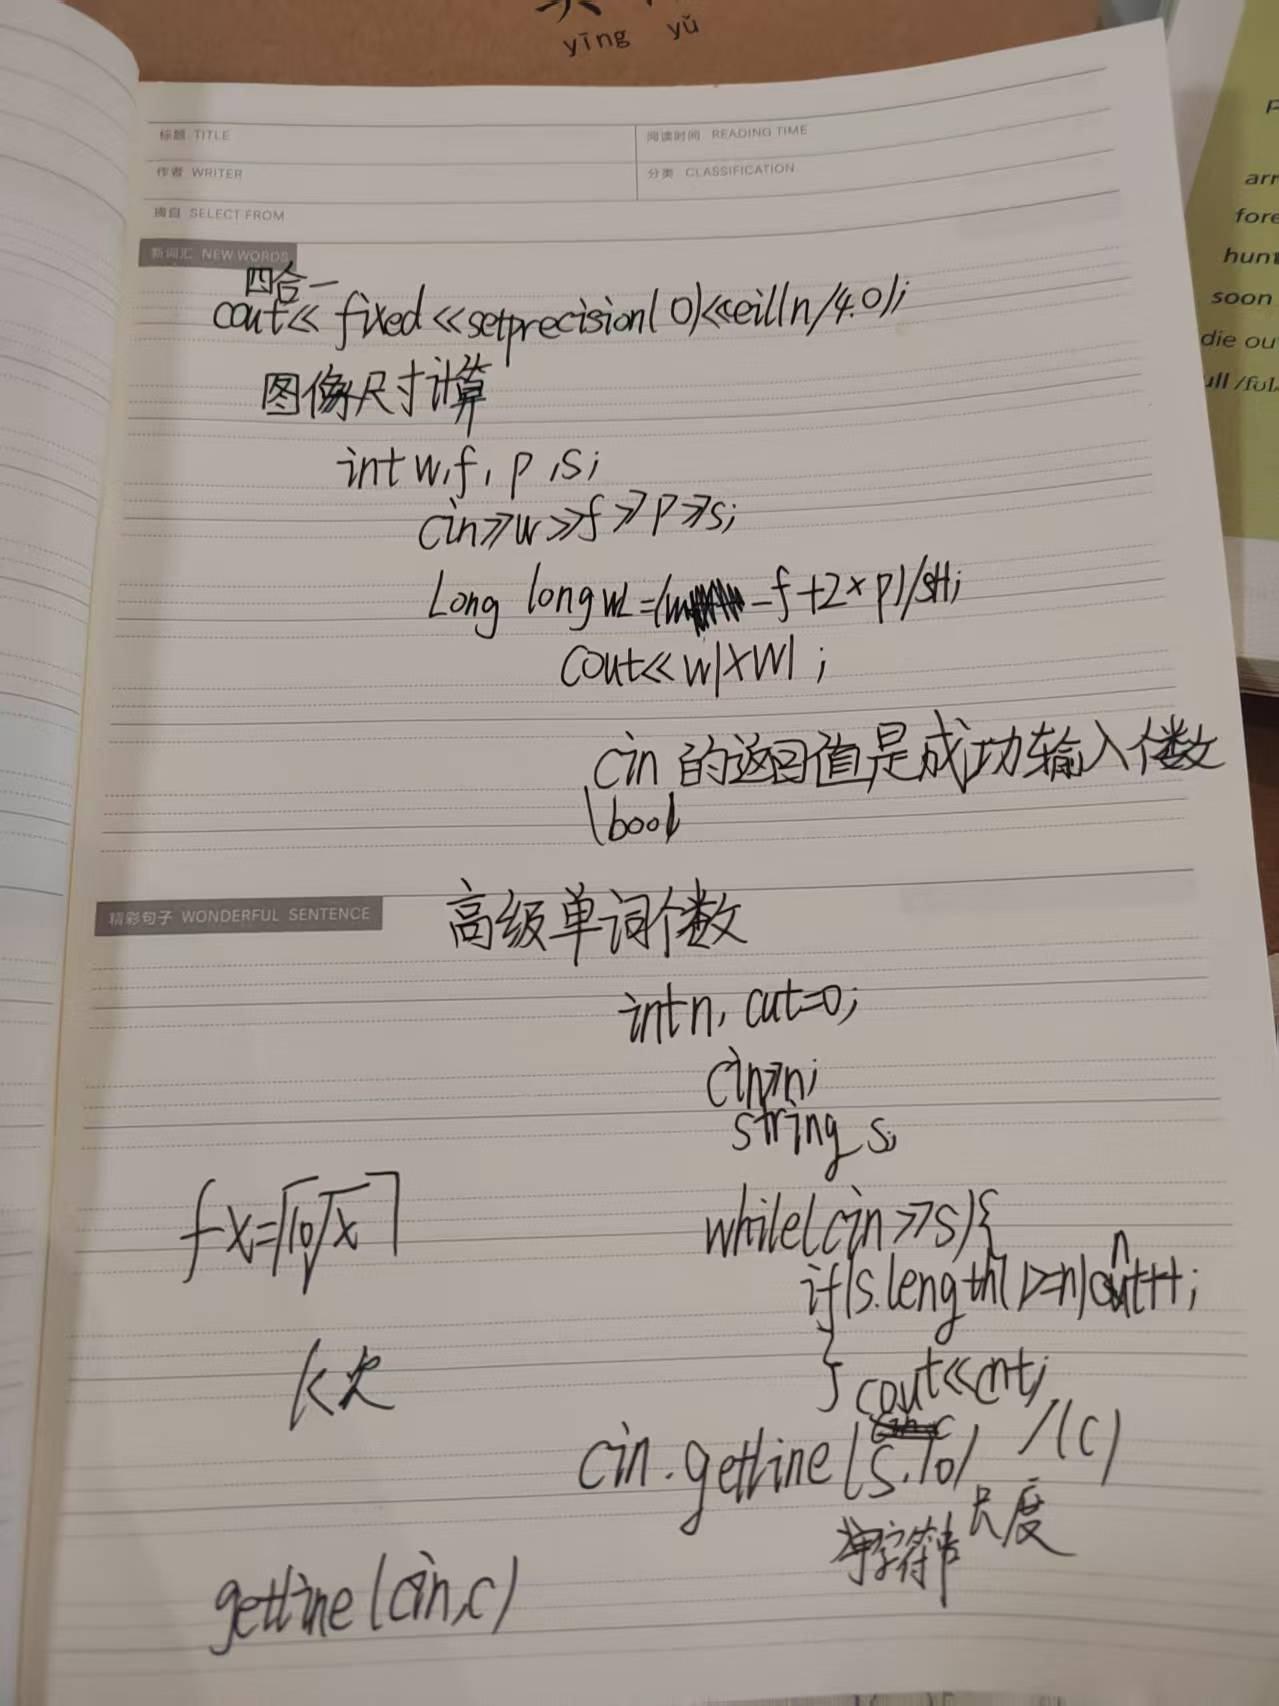 yīng yǔ
标题 TITLE
阅读时间 READING TIME
作者 WRITER
分类 CLASSIFICATION
摘自 SELECT FROM
新词汇 NEW WORDS
四合一
cout<< fixed <<setprecision(0)<<ceil(n/4.0);
图像尺寸计算
int w,f,p,s;
cin>>w>>f>>p>>s;
Long long w1=(w-f+2×p)/s+1;
cout<<w1×w1;
cin 的返回值是成功输入个数
bool
精彩句子 WONDERFUL SENTENCE
高级单词个数
int n, cut=0;
cin>>n;
string s;
while(cin>>s){
if(s.length()>=n)cnt++;
} cout<<cnt;
fx=⌈10√x⌉
k次
cin.getline(s,10) /(c)
字符串 长度
getline(cin,c)
arr
fore
hunt
soon
die ou
ull /fʊl